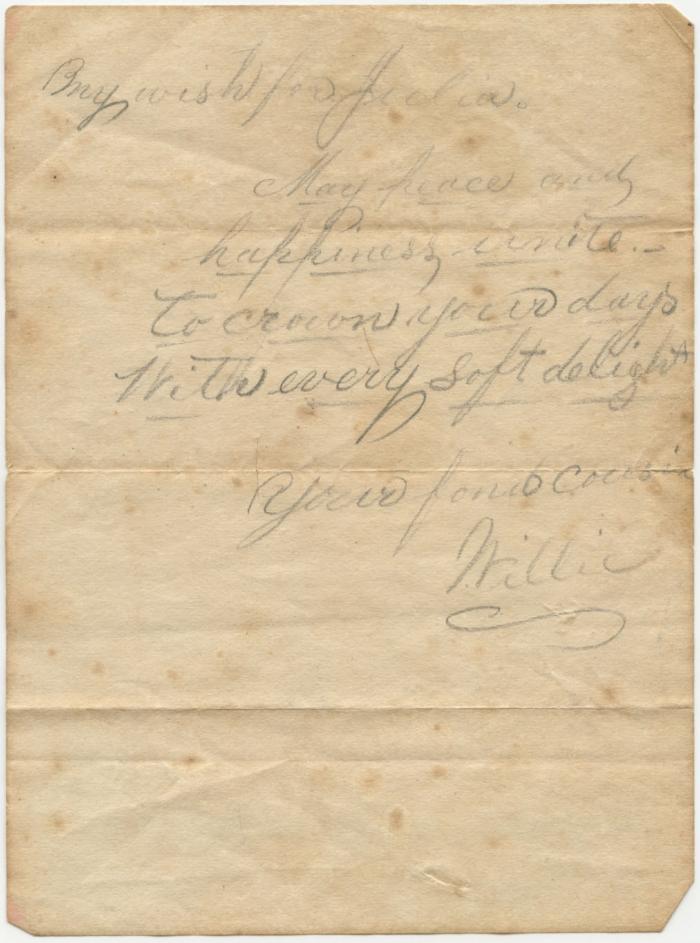 My wish for Julia.
May peace and
happiness unite.-
To crown your days
With every soft delight
Your fond cousin
Willie